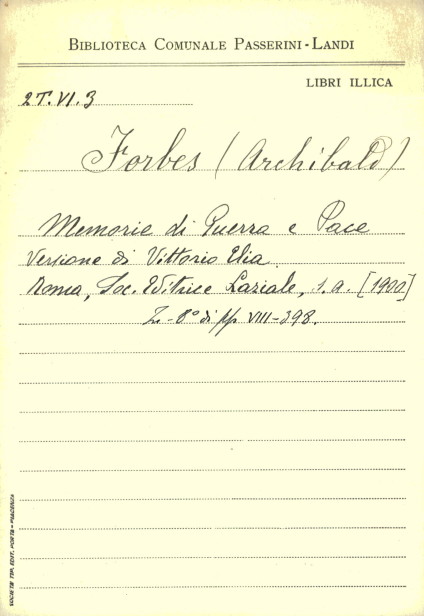 BIBLIOTECA COMUNALE PASSERINI-LANDI
LIBRI ILLICA
2T.VI.3
Forbes (Archibald)
Memorie di Guerra e Pace
Versione di Vittorio Elia.
Roma, Soc. Editrice Laziale, s.a. [1900]
In-8° di pp VIII-398.
SOCIETÀ TIP. EDIT. PORTA - PIACENZA